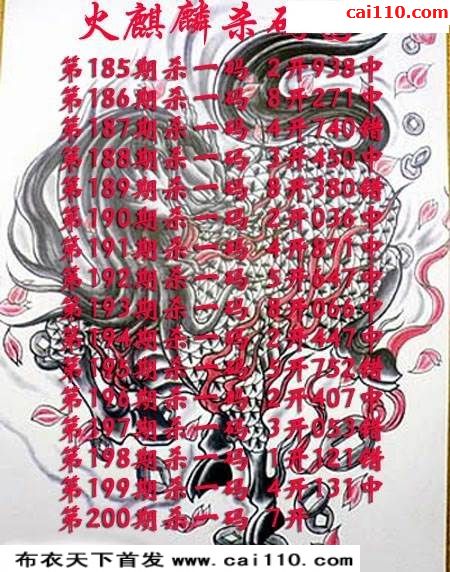 cai110.com
火麒麟杀码
第185期杀一码 2开938中
第186期杀一码 8开271中
第187期杀一码 4开740错
第188期杀一码 3开450中
第189期杀一码 8开380错
第190期杀一码 2开036中
第191期杀一码 4开871中
第192期杀一码 5开647中
第193期杀一码 8开066中
第194期杀一码 2开447中
第195期杀一码 5开752错
第196期杀一码 2开407中
第197期杀一码 3开053错
第198期杀一码 1开121错
第199期杀一码 4开131中
第200期杀一码 7开
布衣天下首发 www.cai110.com